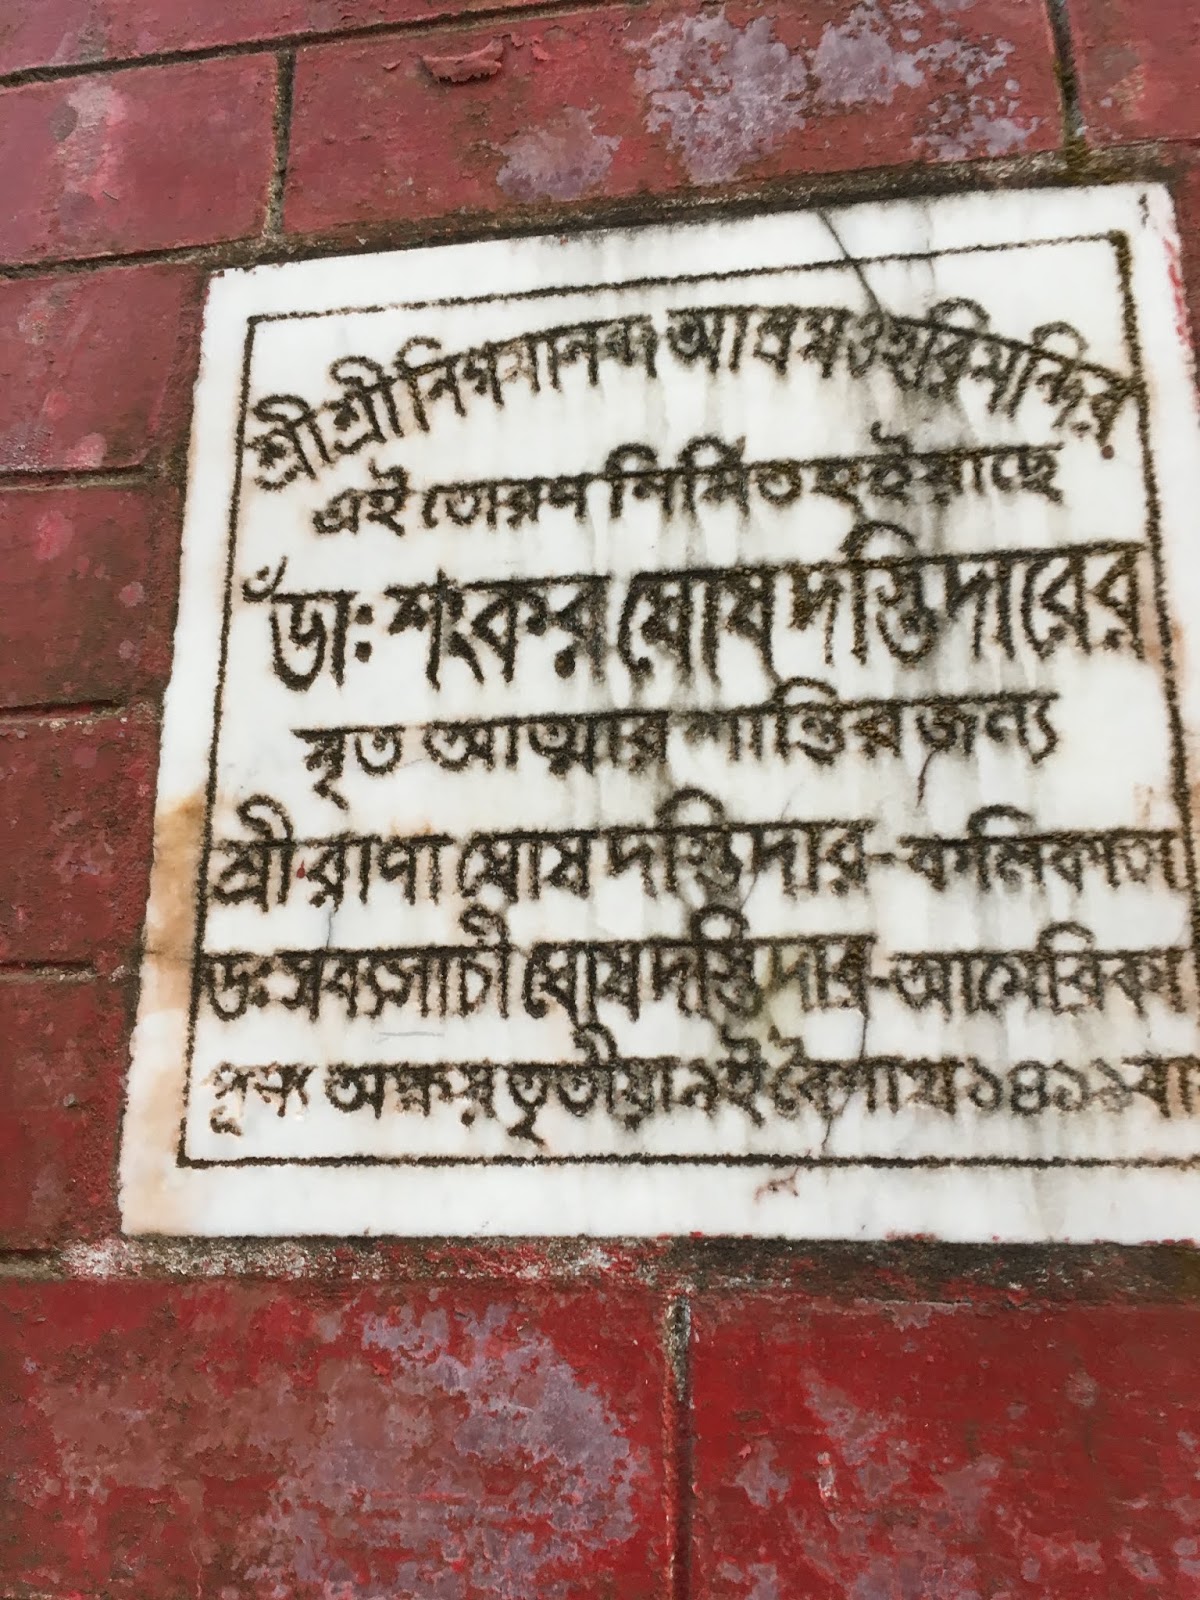 শ্রীশ্রী নিগমানন্দ আশ্রম ও হরিমন্দির
এই তোরণ নির্মিত হইয়াছে
ঁডাঃ শংকর ঘোষ দস্তিদারের
মৃত আত্মার শান্তির জন্য
শ্রী রাণা ঘোষ দস্তিদার-কলিকাতা
ডঃ সব্যসাচী ঘোষ দস্তিদার-আমেরিকা
পূণ্য অক্ষয় তৃতীয়া ৯ই বৈশাখ ১৪১১ বা